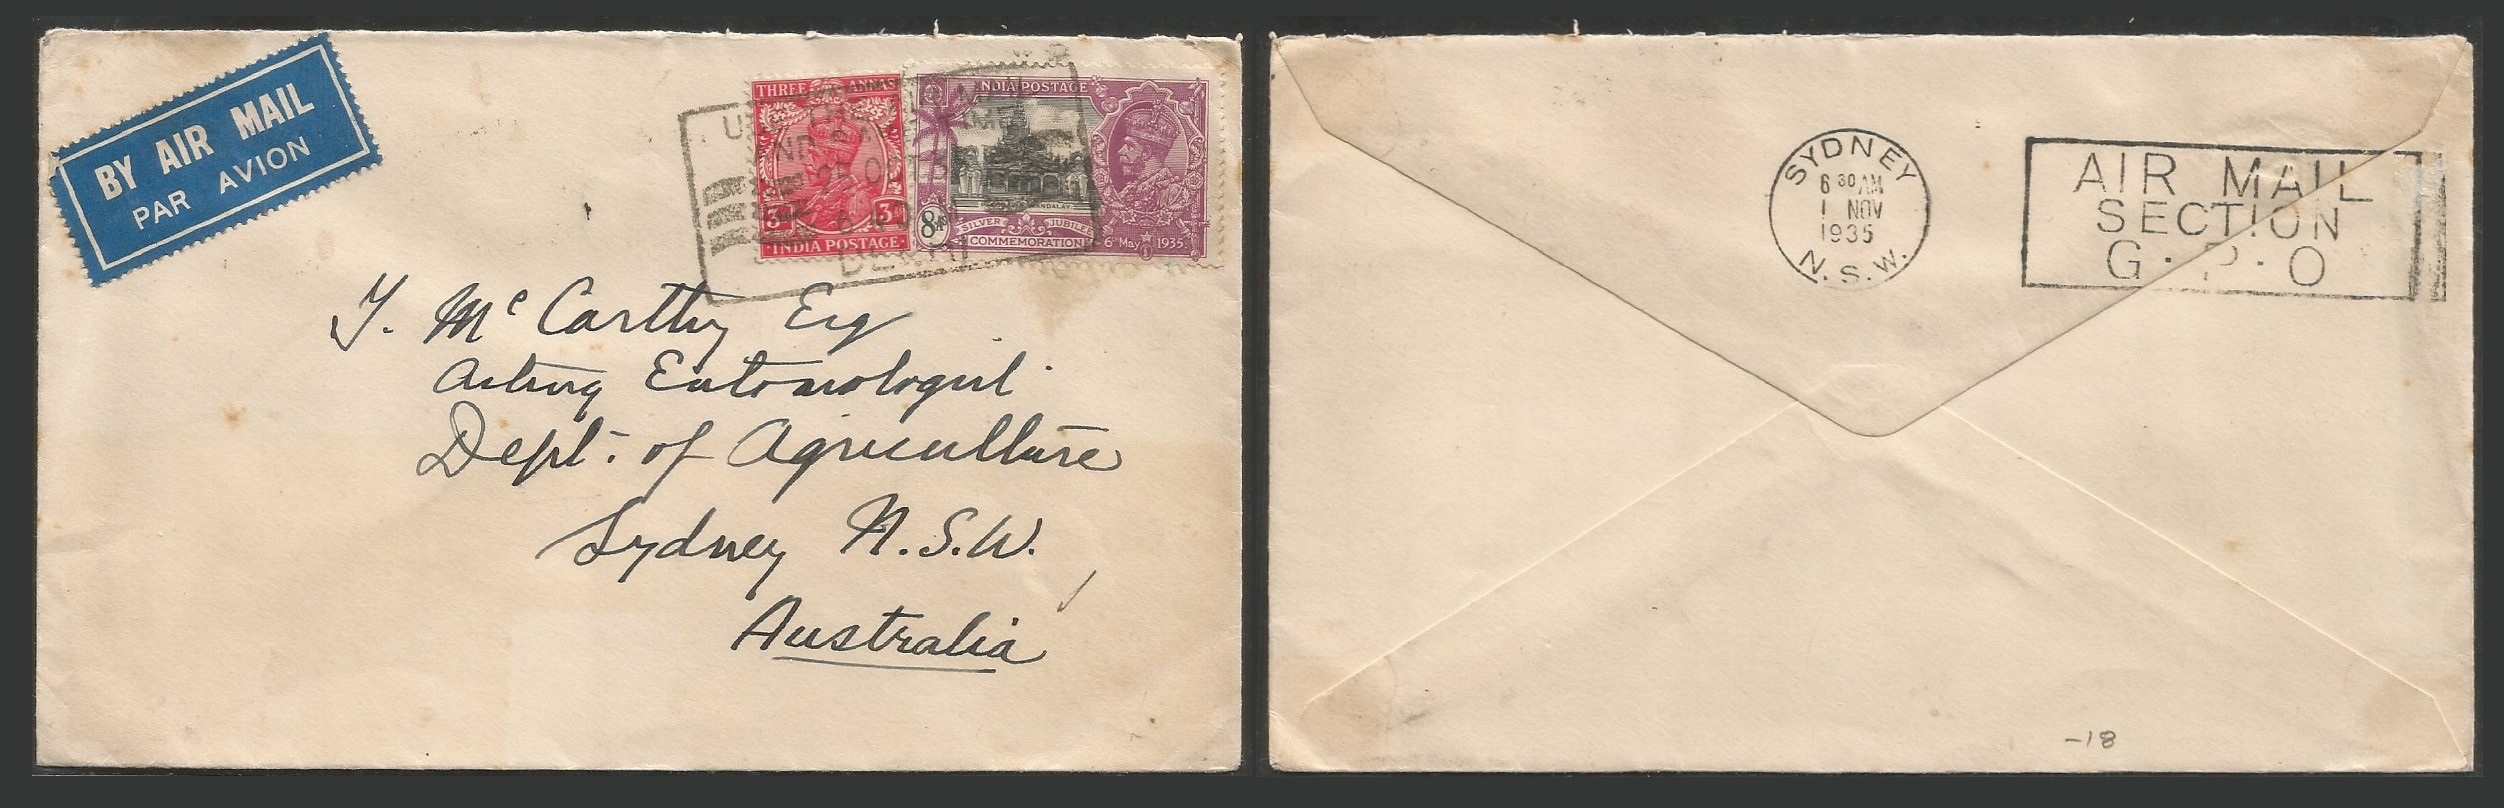 BY AIR MAIL
PAR AVION
THREE ANNAS
3A 3A
INDIA POSTAGE
INDIA POSTAGE
MANDALAY
8As
SILVER JUBILEE
COMMEMORATION
6th May 1935
DELHI
T. McCarthy Esq
Acting Entomologist
Dept. of Agriculture
Sydney N.S.W.
Australia
SYDNEY
6 30 AM
1 NOV
1935
N.S.W.
AIR MAIL
SECTION
G.P.O
-18